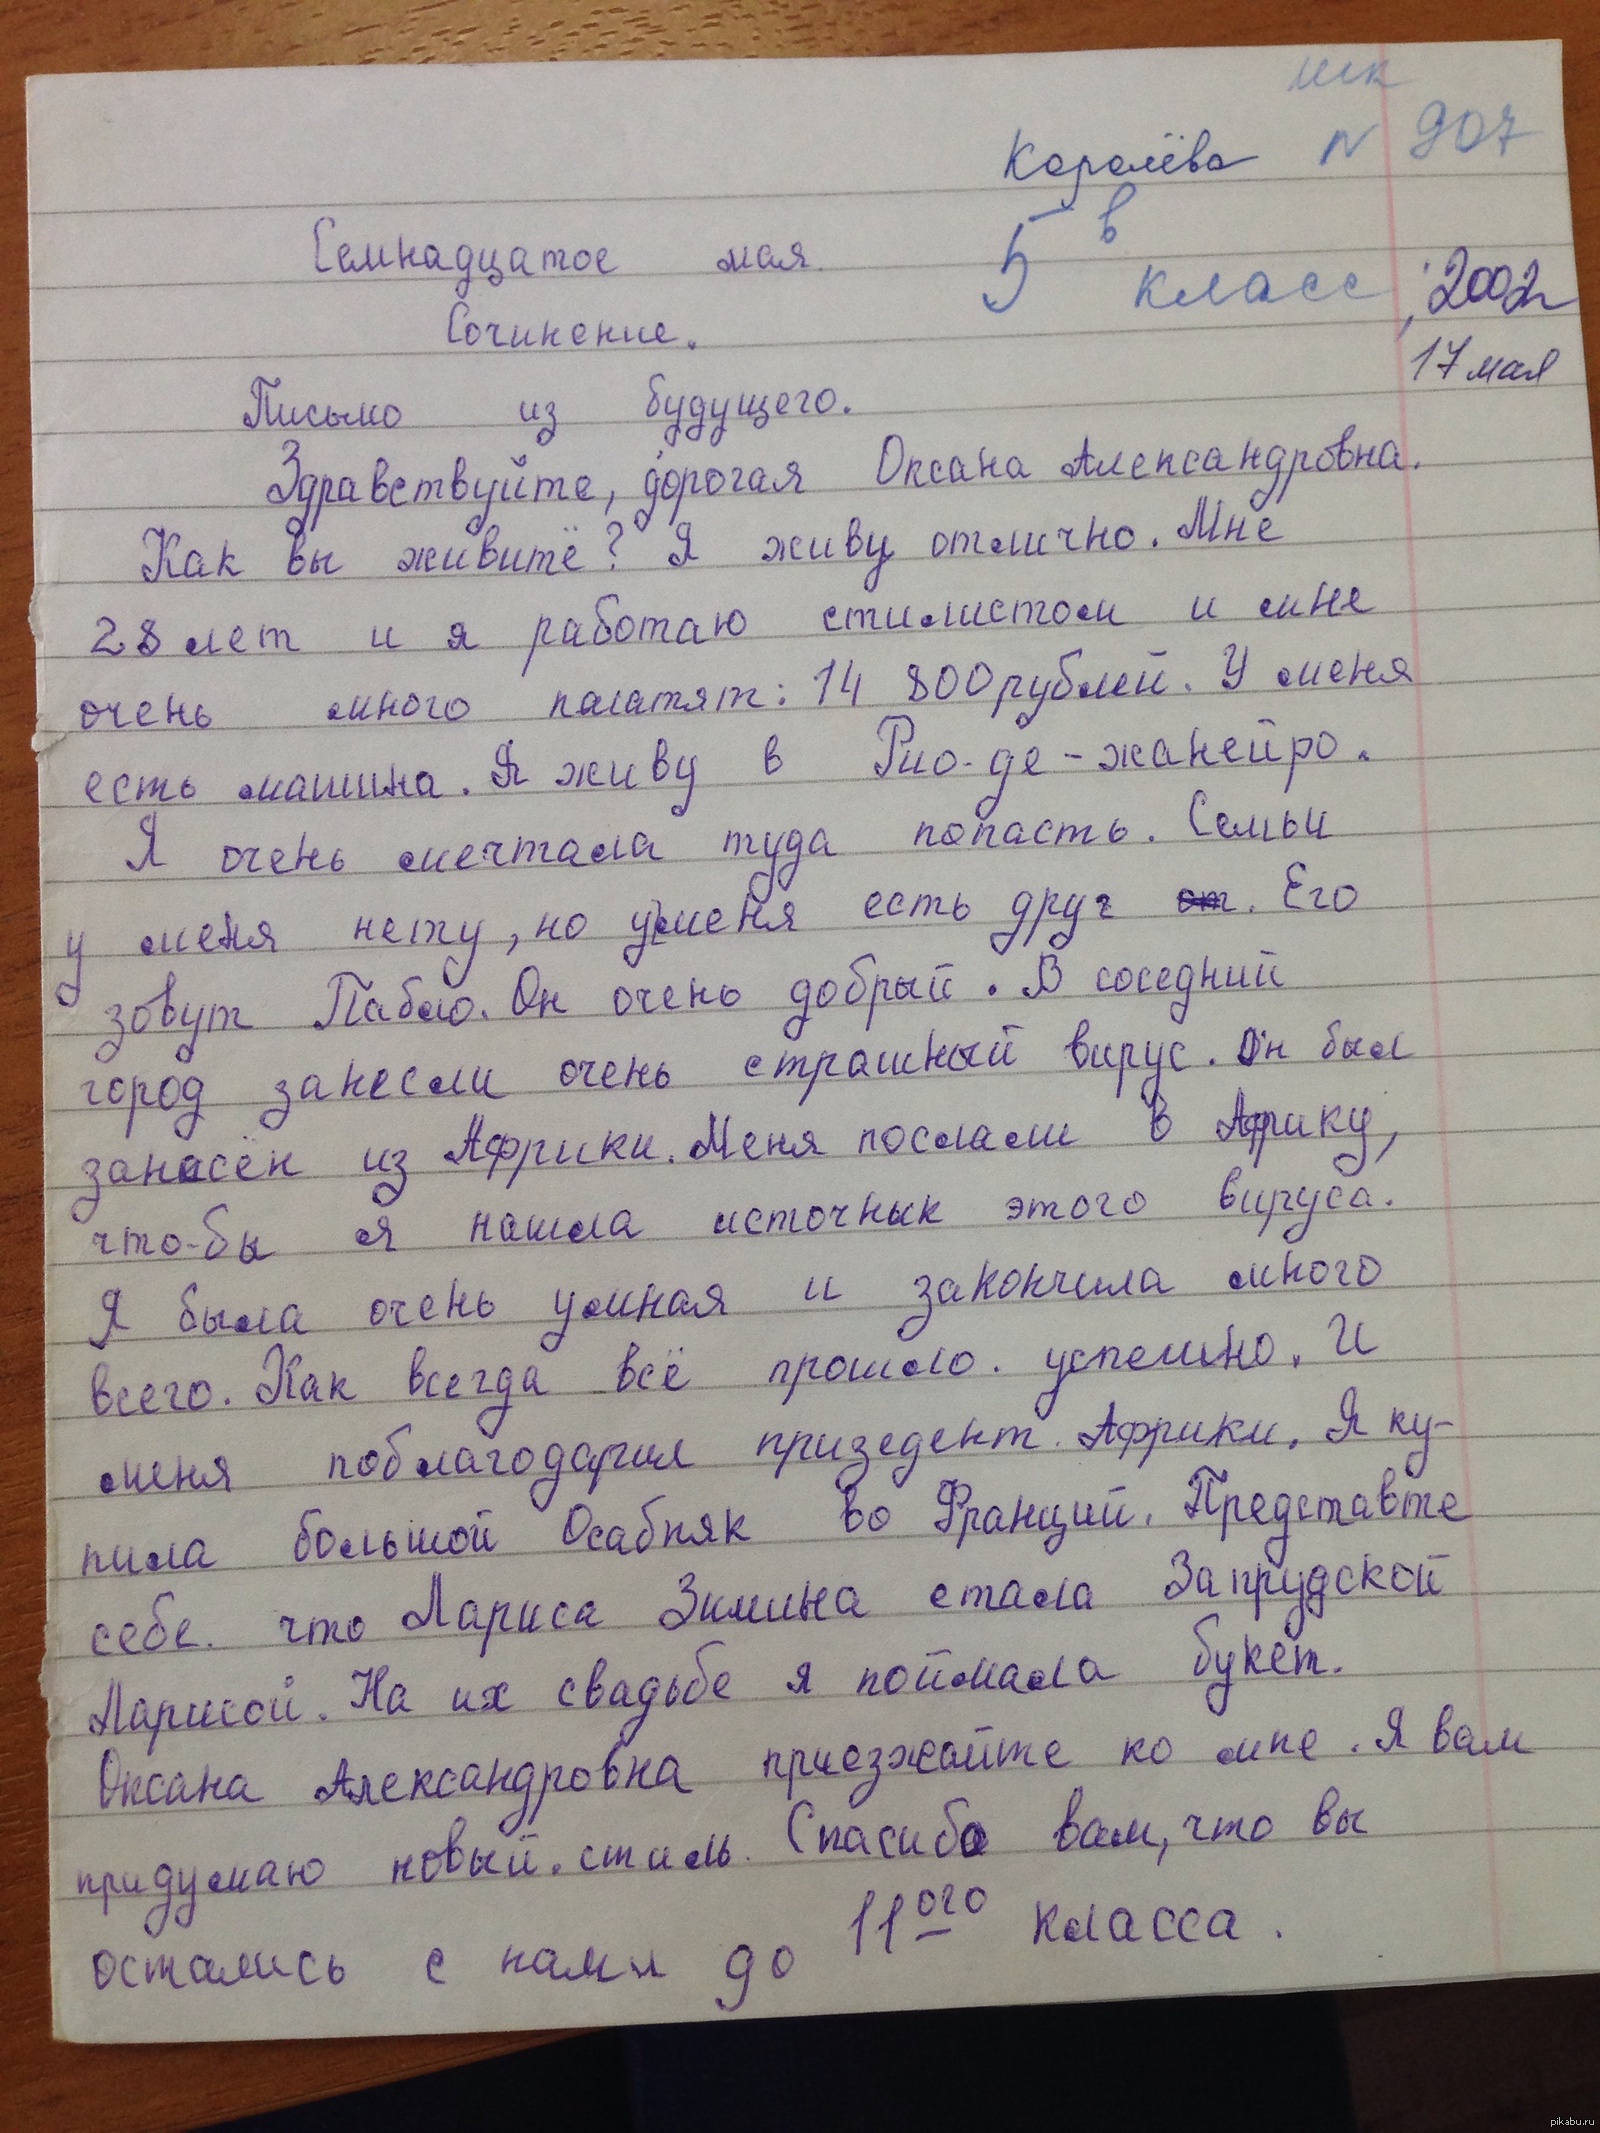 шк
Королёва № 907
Семнадцатое мая.
5 в класс, 2002
17 мая
Сочинение.
Письмо из будущего.
Здравствуйте, дорогая Оксана Александровна.
Как вы живитё? Я живу отлично. Мне
28 лет и я работаю стилистом и мне
очень много палатят: 14 800 рублей. У меня
есть машина. Я живу в Рио-де-жанейро.
Я очень мечтала туда попасть. Семьи
у меня нету, но у меня есть друг от. Его
зовут Пабло. Он очень добрый. В соседний
город занесли очень страшный вирус. Он был
занесён из Африки. Меня послали в Африку,
что-бы я нашла источнык этого вируса.
Я была очень умная и закончила много
всего. Как всегда всё прошло. успешно. И
меня поблагодарил призедент. Африки. Я ку-
пила большой Осабняк во Франций. Представте
себе. что Лариса Зимина стала Запрудской
Ларисой. На их свадьбе я поймала букет.
Оксана Александровна приезжайте ко мне. Я вам
придумаю новый. стиль. Спасибо вам, что вы
остались с нами до 11ого класса.
pikabu.ru